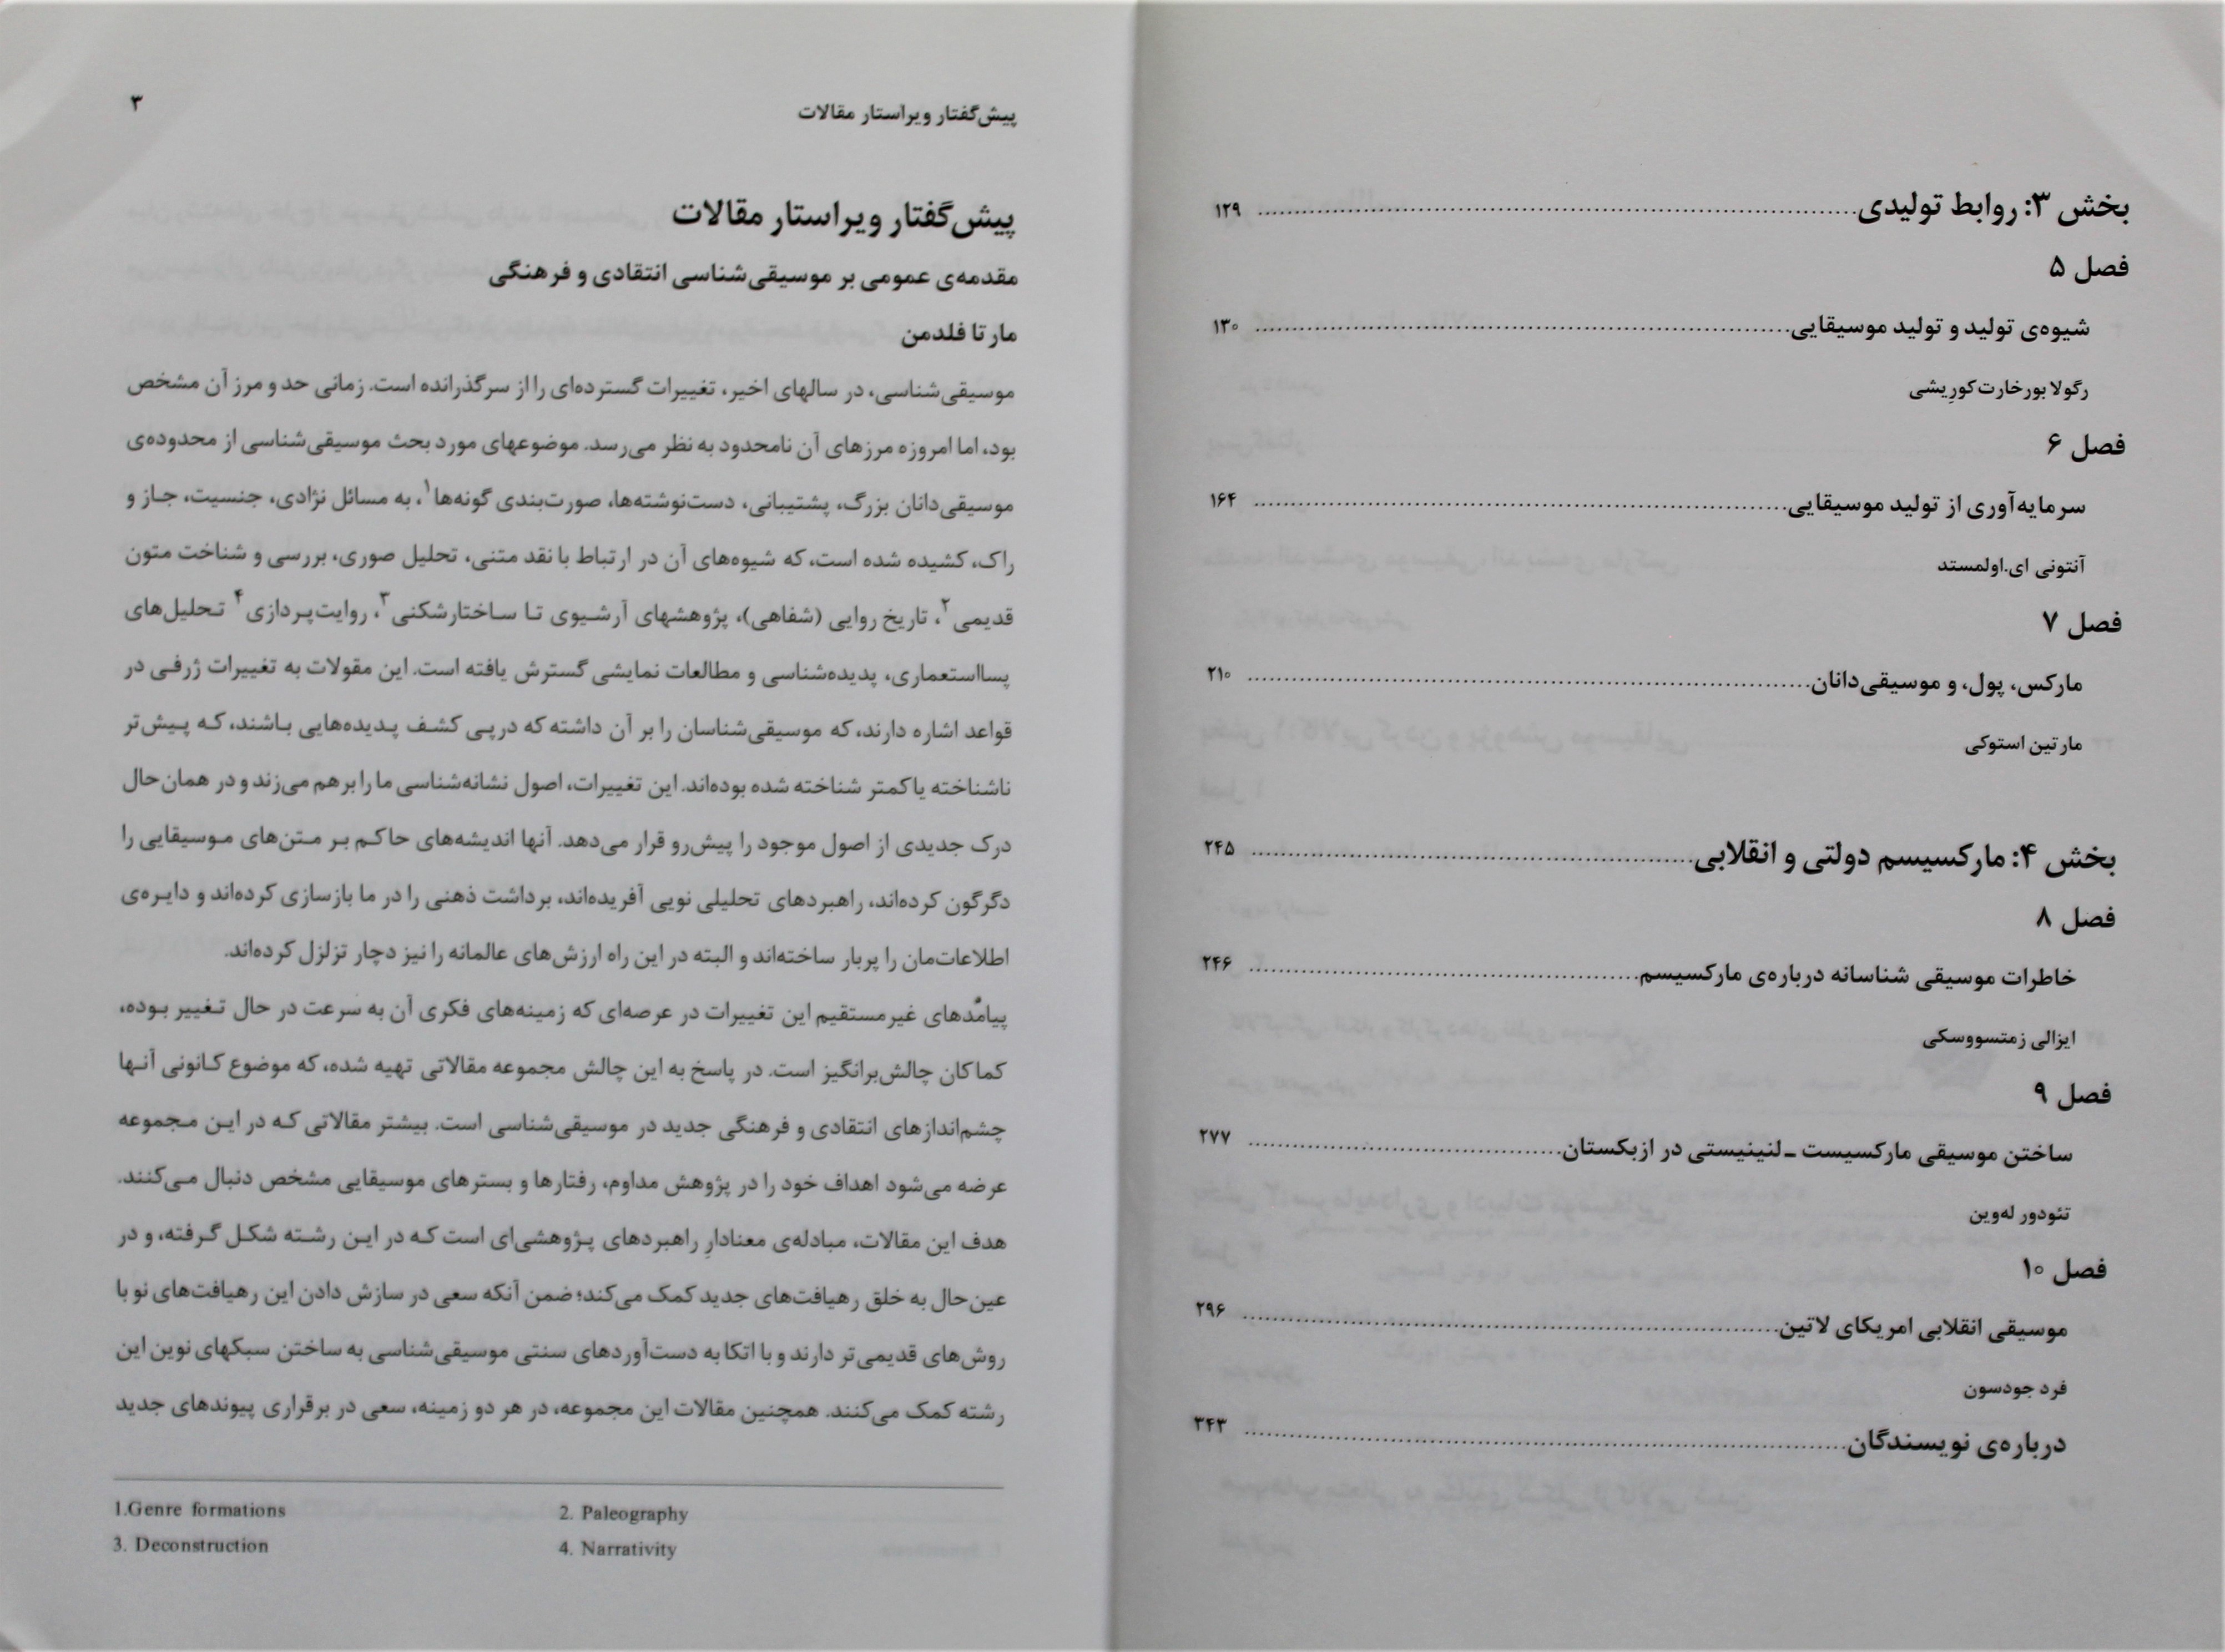 بخش ۳: روابط تولیدی ........ ۱۲۹
فصل ۵
شیوه‌ی تولید و تولید موسیقایی ........ ۱۳۰
رگولا بورخارت کورِیشی
فصل ۶
سرمایه‌آوری از تولید موسیقایی ........ ۱۶۴
آنتونی ای.اولمستد
فصل ۷
مارکس، پول، و موسیقی‌دانان ........ ۲۱۰
مارتین استوکی
بخش ۴: مارکسیسم دولتی و انقلابی ........ ۲۴۵
فصل ۸
خاطرات موسیقی شناسانه درباره‌ی مارکسیسم ........ ۲۴۶
ایزالی زمتسووسکی
فصل ۹
ساختن موسیقی مارکسیست ـ لنینیستی در ازبکستان ........ ۲۷۷
تئودور له‌وین
فصل ۱۰
موسیقی انقلابی امریکای لاتین ........ ۲۹۶
فرد جودسون
درباره‌ی نویسندگان ........ ۳۴۳
پیش‌گفتار ویراستار مقالات ۳
پیش‌گفتار ویراستار مقالات
مقدمه‌ی عمومی بر موسیقی‌شناسی انتقادی و فرهنگی
مارتا فلدمن
موسیقی‌شناسی، در سالهای اخیر، تغییرات گسترده‌ای را از سرگذرانده است. زمانی حد و مرز آن مشخص
بود، اما امروزه مرزهای آن نامحدود به نظر می‌رسد. موضوعهای مورد بحث موسیقی‌شناسی از محدوده‌ی
موسیقی‌دانان بزرگ، پشتیبانی، دست‌نوشته‌ها، صورت‌بندی گونه‌ها۱، به مسائل نژادی، جنسیت، جاز و
راک، کشیده شده است، که شیوه‌های آن در ارتباط با نقد متنی، تحلیل صوری، بررسی و شناخت متون
قدیمی۲، تاریخ روایی (شفاهی)، پژوهشهای آرشیوی تا ساختارشکنی۳، روایت‌پردازی۴ تحلیل‌های
پسااستعماری، پدیده‌شناسی و مطالعات نمایشی گسترش یافته است. این مقولات به تغییرات ژرفی در
قواعد اشاره دارند، که موسیقی‌شناسان را بر آن داشته که درپی کشف پدیده‌هایی باشند، که پیش‌تر
ناشناخته یا کمتر شناخته شده بوده‌اند. این تغییرات، اصول نشانه‌شناسی ما را برهم می‌زند و در همان‌حال
درک جدیدی از اصول موجود را پیش‌رو قرار می‌دهد. آنها اندیشه‌های حاکم بر متن‌های موسیقایی را
دگرگون کرده‌اند، راهبردهای تحلیلی نویی آفریده‌اند، برداشت ذهنی را در ما بازسازی کرده‌اند و دایره‌ی
اطلاعات‌مان را پربار ساخته‌اند و البته در این راه ارزش‌های عالمانه را نیز دچار تزلزل کرده‌اند.
پیامدهای غیرمستقیم این تغییرات در عرصه‌ای که زمینه‌های فکری آن به سرعت در حال تغییر بوده،
کماکان چالش‌برانگیز است. در پاسخ به این چالش مجموعه مقالاتی تهیه شده، که موضوع کانونی آنها
چشم‌اندازهای انتقادی و فرهنگی جدید در موسیقی‌شناسی است. بیشتر مقالاتی که در این مجموعه
عرضه می‌شود اهداف خود را در پژوهش مداوم، رفتارها و بسترهای موسیقایی مشخص دنبال می‌کنند.
هدف این مقالات، مبادله‌ی معنادارِ راهبردهای پژوهشی‌ای است که در این رشته شکل گرفته، و در
عین‌حال به خلق رهیافت‌های جدید کمک می‌کند؛ ضمن آنکه سعی در سازش دادن این رهیافت‌های نو با
روش‌های قدیمی‌تر دارند و با اتکا به دست‌آوردهای سنتی موسیقی‌شناسی به ساختن سبکهای نوین این
رشته کمک می‌کنند. همچنین مقالات این مجموعه، در هر دو زمینه، سعی در برقراری پیوندهای جدید
1.Genre formations 2. Paleography
3. Deconstruction 4. Narrativity